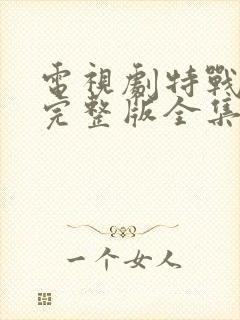 電視劇特戰
完整版全集
一个女人